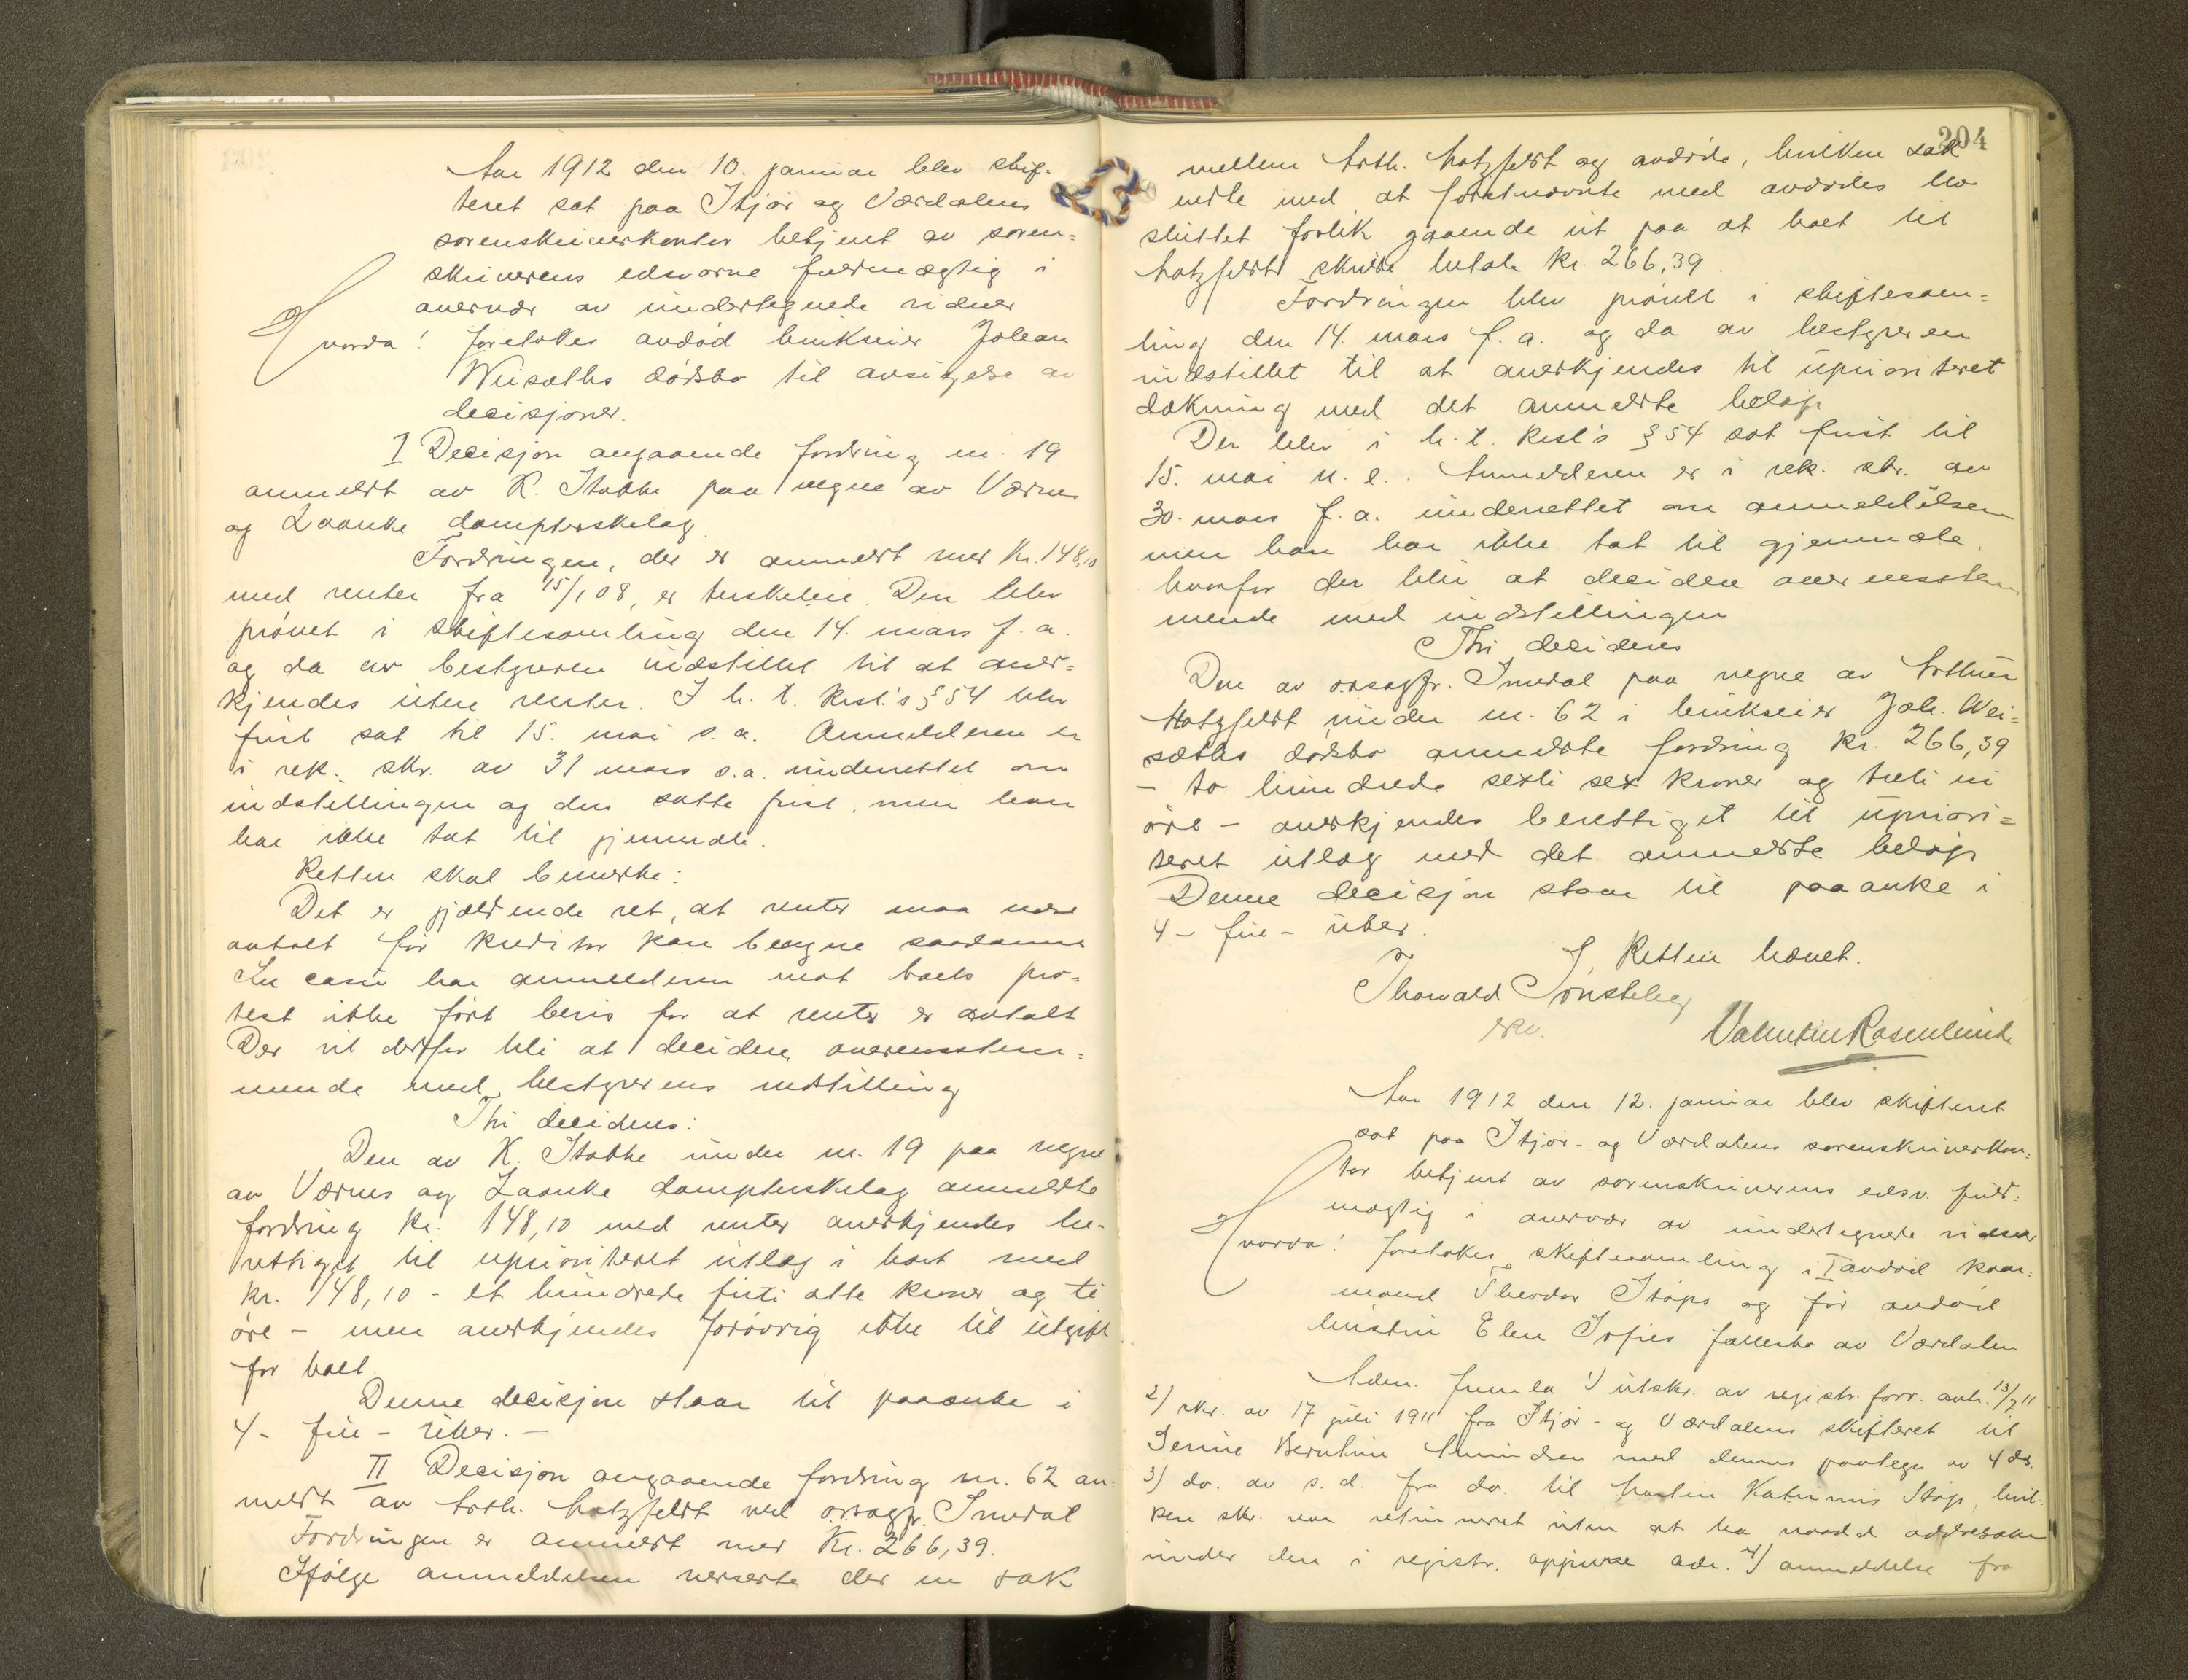 Aar 1912 den 10. januar blev skif-
teret sat paa Stjør og Værdalens
sorenskriverkontor betjent av soren=
skriverens edsvorne fuldmægtig i
overvær av undertegnede vidner
Hvorda! foretokes avdød brukseier Johan
Weisæths dødsbo til avsigelse av
decisjoner.
I Decisjon angaaende fordring nr. 19
anmeldt av K. Stokke paa vegne av Værnes
og Laanke damptærskelag
Fordringen, der er anmeldt med Kr. 148,10
med renter fra 15/1 08, er terskeleie. Den blev
prøvet i skiftesamling den 14. mars f. a.
og da av bestyreren indstillet til at aner=
kjendes uten renter. I h. t. kksl.'s § 54 blev
frist sat til 15. mai s. a. Anmelderen er
i rek. skr. av 31 mars s. a. underrettet om
indstillingen og den satte frist, men han
har ikke tat til gjenmæle.
Retten skal bemerke:
Det er gjældende ret, at renter maa være
avtalt før kreditor kan beregne saadanne
In casu har anmelderen mot boets pro=
test ikke ført bevis for at renter er avtalt
Der vil derfor bli at decidere overensstem=
mende med bestyrerens indstilling
Thi decideres:
Den av K. Stokke under nr. 19 paa vegne
av Værnes og Laanke damptærskelag anmeldte
fordring kr. 148,10 med renter anerkjendes be-
rettiget til uprioriteret utlæg i boet med
kr. 148,10 - et hundrede firti otte kroner og ti
øre - men anerkjendes forøvrig ikke til utgift
for boet.
Denne decisjon staar til paaanke i
4 - fire - uker. -
II Decisjon angaaende fordring nr. 62 an-
meldt av Arth. Hatzfeldt ved o.r.sagf. Imerdal
Fordringen er anmeldt med Kr. 266,39.
Ifølge anmeldelsen verserte der en sak
204
mellem Arth. Hatzfeldt og avdøde, hvilken sak
endte med at førstnævnte med avdødes bo
sluttet forlik gaaende ut paa at boet til
Hatzfeldt skulde betale kr. 266,39.
Fordringen blev prøvet i skiftesam=
ling den 14. mars f. a. og da av bestyreren
indstillet til at anerkjendes til uprioriteret
dækning med det anmeldte beløp
Der blev i h. t. kksl.'s § 54 sat frist til
15. mai n. e. Anmelderen er i rek. skr. av
30. mars f. a. underrettet om anmeldelsen
men han har ikke tat til gjenmæle.
hvorfor der blir at decidere overensstem
mende med indstillingen
Thi decideres
Den av o.r.sagf. Imerdal paa vegne av Arthur
Hatzfeldt under nr. 62 i brukseier Joh. Wei=
sæths dødsbo anmeldte fordring kr. 266,39
- to hundrede sexti sex kroner og treti ni
øre - anerkjendes berettiget til upriori=
teret utlæg med det anmeldte beløp
Denne decisjon staar til paaanke i
4 - fire - uker.
Retten hævet.
Thorvald
skr.
Valentin Rosenlund
Aar 1912 den 12. januar blev skifteret
sat paa Stjør- og Værdalens sorenskriverkon-
tor betjent av sorenskriverens edsv. fuld-
mægtig i overvær av undertegnede vidner
Hvorda! foretokes skiftesamling i I avdød kaar-
mand Theodor Støps og før avdød
hustru Elen Sofies fællesbo av Værdalen
Adm. fremla 1) utskr. av registr. forr. avh. 13/7 11
2) skr. av 17 juli 1911 fra Stjør- og Værdalens skifteret til
Jenine Berntine Amundsen med dennes paategn. av 4 ds.
3) do. av s. d. fra do. til Martin Katrinus Støp, hvil-
ken skr. var returneret uten at ha naadd adressaten
under den i registr. opgivne adr. 4) anmeldelse fra